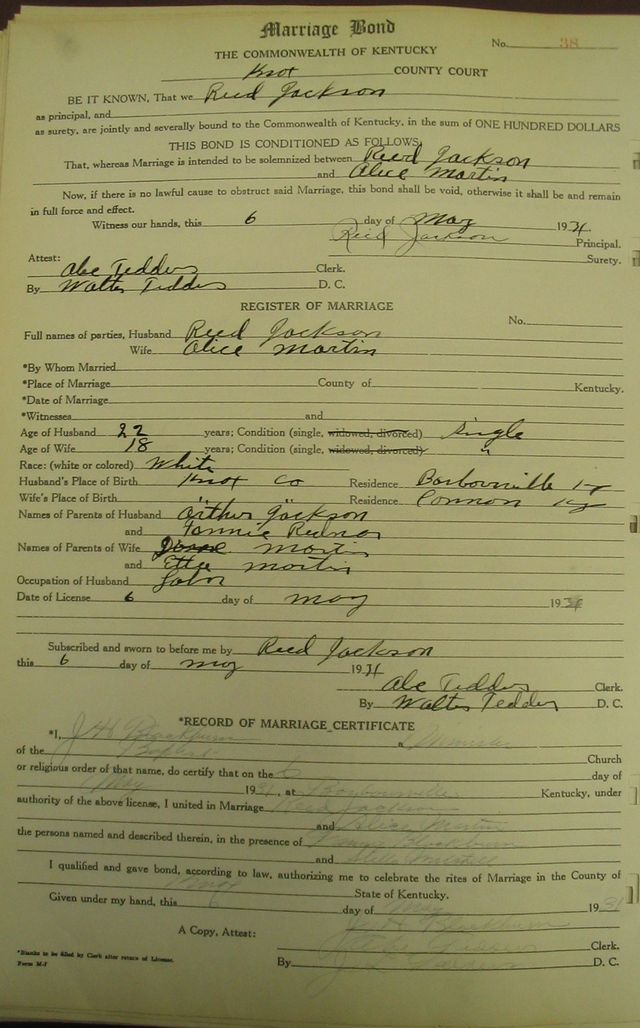 Marriage Bond
No. 38
THE COMMONWEALTH OF KENTUCKY
Knox COUNTY COURT
BE IT KNOWN, That we Reed Jackson
as principal, and
as surety, are jointly and severally bound to the Commonwealth of Kentucky, in the sum of ONE HUNDRED DOLLARS
THIS BOND IS CONDITIONED AS FOLLOWS,
That, whereas Marriage is intended to be solemnized between Reed Jackson
and Alice Martin
Now, if there is no lawful cause to obstruct said Marriage, this bond shall be void, otherwise it shall be and remain
in full force and effect.
Witness our hands, this 6 day of May 1931.
Reed Jackson Principal.
Surety.
Attest:
Abe Tedders Clerk.
By Walter Tedders D. C.
REGISTER OF MARRIAGE
No.
Full names of parties, Husband Reed Jackson
Wife Alice Martin
*By Whom Married
*Place of Marriage County of Kentucky.
*Date of Marriage
*Witnesses and
Age of Husband 22 years; Condition (single, widowed, divorced) single
Age of Wife 18 years; Condition (single, widowed, divorced) "
Race: (white or colored) White
Husband's Place of Birth Knox Co Residence Barbourville Ky
Wife's Place of Birth " " Residence Cannon Ky
Names of Parents of Husband Arthur Jackson
and Fannie
Names of Parents of Wife Martin
and Martin
Occupation of Husband Labor
Date of License 6 day of May 1931
Subscribed and sworn to before me by Reed Jackson
this 6 day of May 1931
Abe Tedders Clerk.
By Walter Tedders D. C.
*RECORD OF MARRIAGE CERTIFICATE
*I, J. H. Blackburn a Minister
of the Baptist Church
or religious order of that name, do certify that on the 6 day of
May 1931, at Barbourville Kentucky, under
authority of the above license, I united in Marriage Reed Jackson
and Alice Martin
the persons named and described therein, in the presence of Blackburn
and
I qualified and gave bond, according to law, authorizing me to celebrate the rites of Marriage in the County of
Knox State of Kentucky.
Given under my hand, this 6 day of May 1931
J. H. Blackburn
A Copy, Attest:
Clerk.
By D. C.
*Blanks to be filled by Clerk after return of License.
Form M-7